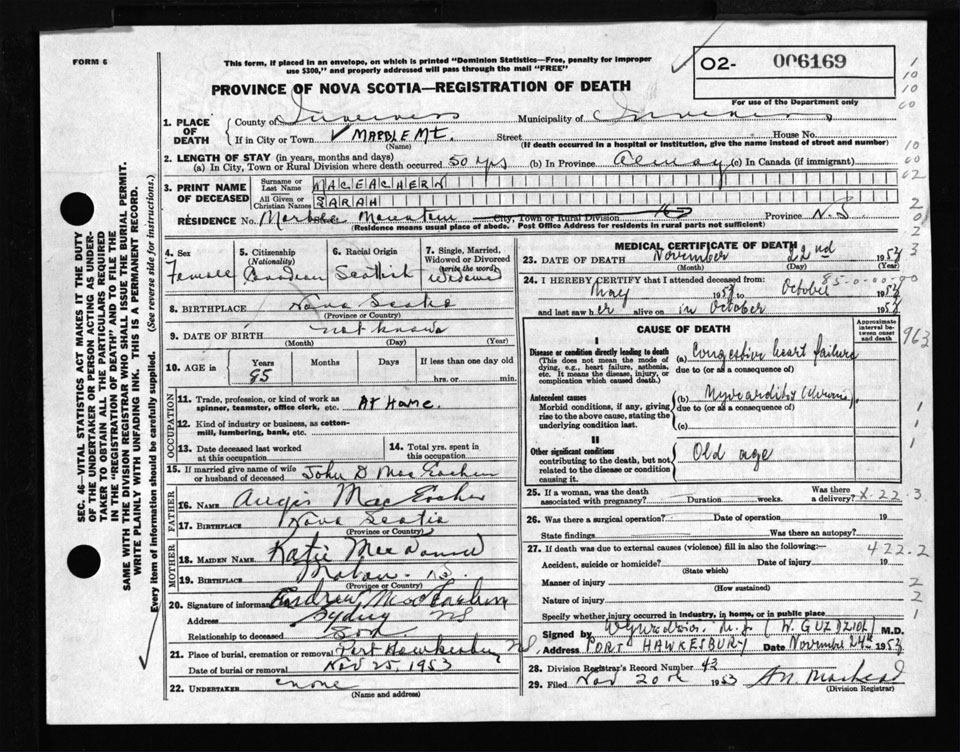 FORM 6
This form, if placed in an envelope, on which is printed "Dominion Statistics—Free, penalty for improper
use $300," and properly addressed will pass through the mail "FREE"
O2- 006169
For use of the Department only
PROVINCE OF NOVA SCOTIA—REGISTRATION OF DEATH
1. PLACE OF DEATH
County of Inverness Municipality of Inverness
If in City or Town MARBLE Mt. Street House No.
(Name) (If death occurred in a hospital or institution, give the name instead of street and number)
2. LENGTH OF STAY (in years, months and days)
(a) In City, Town or Rural Division where death occurred 50 yrs (b) In Province always (c) In Canada (if immigrant)
3. PRINT NAME OF DECEASED
Surname or Last Name MACEACHERN
All Given or Christian Names SARAH
RÉSIDENCE No. Marble Mountain City, Town or Rural Division Province N.S
(Residence means usual place of abode. Post Office Address for residents in rural parts not sufficient)
4. Sex Female
5. Citizenship (Nationality) Canadian
6. Racial Origin Scottish
7. Single, Married, Widowed or Divorced (write the word) Widowed
8. BIRTHPLACE Nova Scotia
(Province or Country)
9. DATE OF BIRTH not known
(Month) (Day) (Year)
10. AGE in Years 85 Months Days If less than one day old
hrs. or min.
OCCUPATION
11. Trade, profession, or kind of work as spinner, teamster, office clerk, etc. At Home.
12. Kind of industry or business, as cotton-mill, lumbering, bank, etc.
13. Date deceased last worked at this occupation
14. Total yrs. spent in this occupation
15. If married give name of wife or husband of deceased John D MacEachern
FATHER
16. NAME Angus MacEachern
17. BIRTHPLACE Nova Scotia
(Province or Country)
MOTHER
18. MAIDEN NAME Katie MacDonald
19. BIRTHPLACE Mabou
(Province or Country)
20. Signature of informant Andrew MacEachern
Address Sydney NS
Relationship to deceased Son
21. Place of burial, cremation or removal Port Hawkesbury NS.
Date of burial or removal Nov 25 1953
22. UNDERTAKER none
(Name and address)
MEDICAL CERTIFICATE OF DEATH
23. DATE OF DEATH November 22nd 1953
(Month) (Day) (Year)
24. I HEREBY CERTIFY that I attended deceased from:
May 1953 to October 1953
and last saw her alive on in October 1953
85-0-00-00
CAUSE OF DEATH
Approximate interval between onset and death
I
Disease or condition directly leading to death
(This does not mean the mode of dying, e.g., heart failure, asthenia, etc. It means the disease, injury, or complication which caused death.)
(a) Congestive heart failure
due to (or as a consequence of)
Antecedent causes
Morbid conditions, if any, giving rise to the above cause, stating the underlying condition last.
(b) Myocarditis (chronic)
due to (or as a consequence of)
(c)
II
Other significant conditions
contributing to the death, but not related to the disease or condition causing it.
Old age
25. If a woman, was the death associated with pregnancy? Duration weeks. Was there a delivery? X-22.3
26. Was there a surgical operation? Date of operation 19
State findings Was there an autopsy?
27. If death was due to external causes (violence) fill in also the following:— 422.2
Accident, suicide or homicide? Date of injury 19
(State which)
Manner of injury
(How sustained)
Nature of injury
Specify whether injury occurred in industry, in home, or in public place
Signed by (W. GUZDZIOL) M.D.
Address PORT HAWKESBURY Date November 24th 1953
28. Division Registrar's Record Number 42
29. Filed Nov 1953
(Division Registrar)
963
SEC. 46—VITAL STATISTICS ACT MAKES IT THE DUTY
OF THE UNDERTAKER OR PERSON ACTING AS UNDER-
TAKER TO OBTAIN ALL THE PARTICULARS REQUIRED
IN THE "REGISTRATION OF DEATH" AND TO FILE THE
SAME WITH THE DIVISION REGISTRAR WHO SHALL ISSUE THE BURIAL PERMIT.
WRITE PLAINLY WITH UNFADING INK. THIS IS A PERMANENT RECORD.
Every item of information should be carefully supplied. (See reverse side for instructions.)